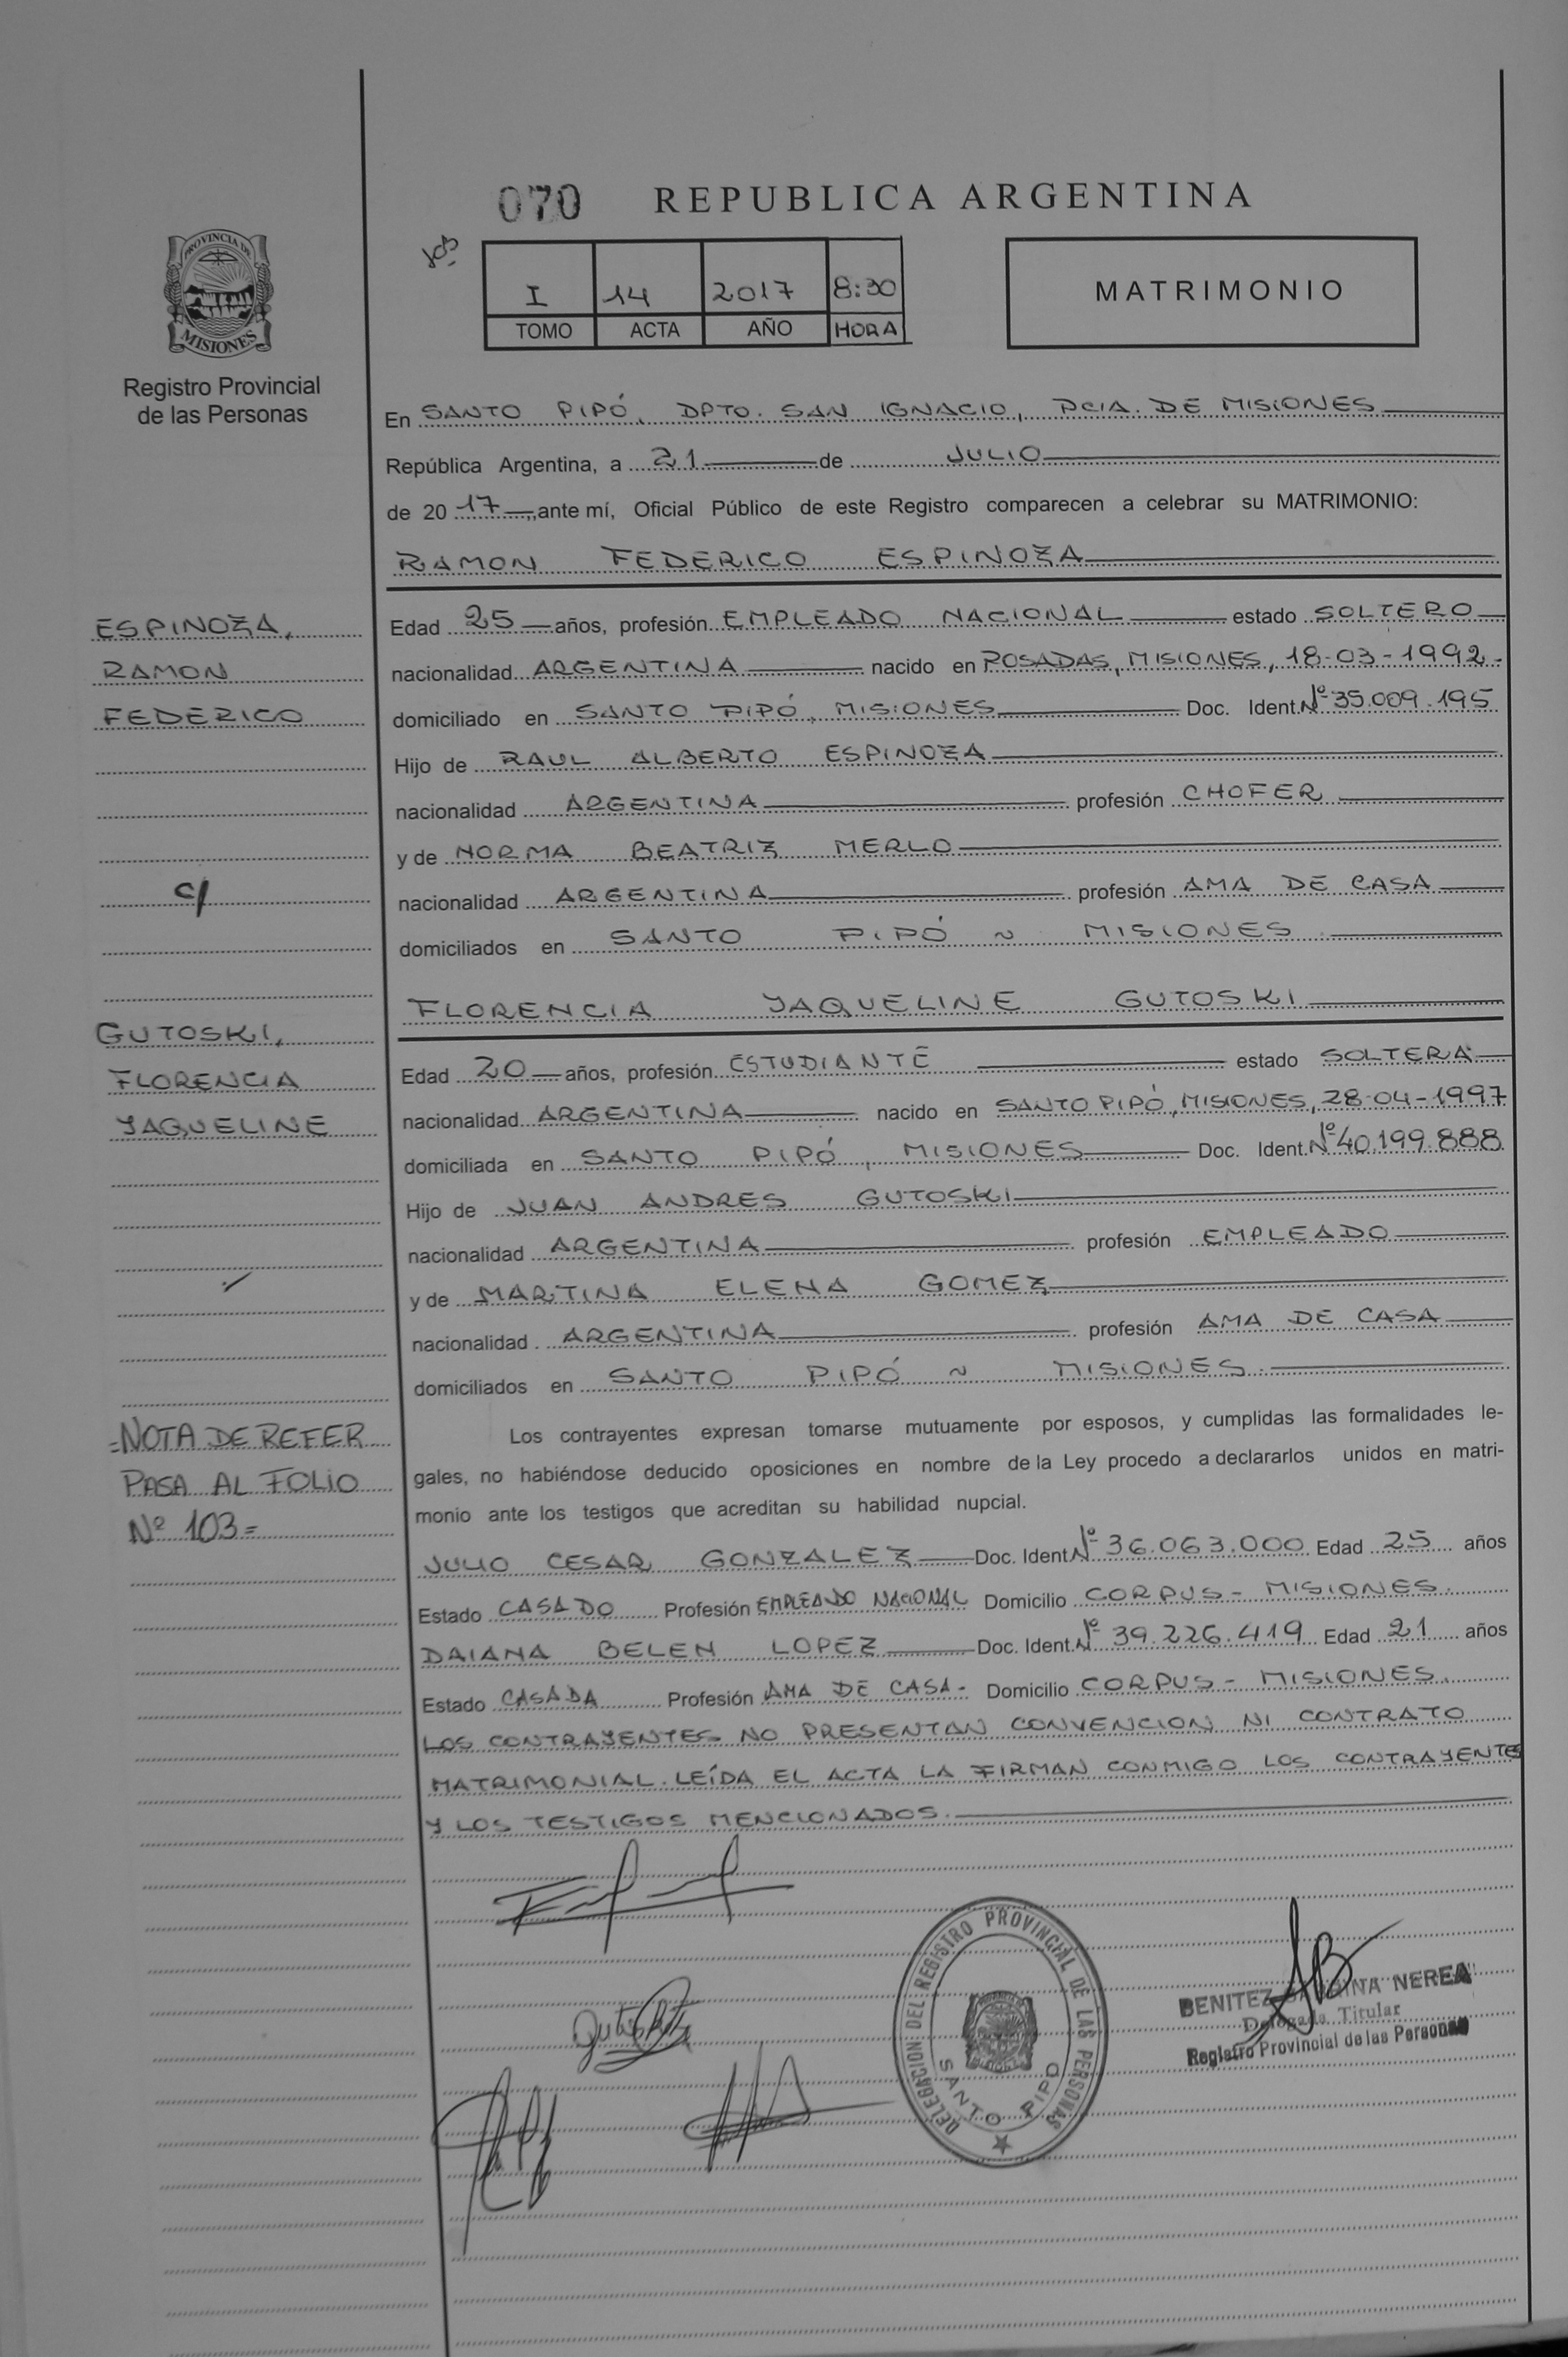 070 REPUBLICA ARGENTINA
103
I 14 2017 8:30
TOMO ACTA AÑO HORA
MATRIMONIO
PROVINCIA DE
MISIONES
Registro Provincial
de las Personas
En SANTO PIPÓ, DPTO. SAN IGNACIO, PCIA. DE MISIONES
República Argentina, a 21 de JULIO
de 20 17, ante mí, Oficial Público de este Registro comparecen a celebrar su MATRIMONIO:
RAMON FEDERICO ESPINOZA
ESPINOZA,
RAMON
FEDERICO
c/
GUTOSKI,
FLORENCIA
YAQUELINE
=NOTA DE REFER
PASA AL FOLIO
Nº 103=
Edad 25 años, profesión EMPLEADO NACIONAL estado SOLTERO
nacionalidad ARGENTINA nacido en POSADAS, MISIONES, 18-03-1992.
domiciliado en SANTO PIPÓ, MISIONES Doc. Ident. Nº 35.009.195
Hijo de RAUL ALBERTO ESPINOZA
nacionalidad ARGENTINA profesión CHOFER
y de NORMA BEATRIZ MERLO
nacionalidad ARGENTINA profesión AMA DE CASA
domiciliados en SANTO PIPÓ ~ MISIONES.
FLORENCIA YAQUELINE GUTOSKI
Edad 20 años, profesión ESTUDIANTE estado SOLTERA
nacionalidad ARGENTINA nacido en SANTO PIPÓ, MISIONES, 28-04-1997
domiciliada en SANTO PIPÓ, MISIONES Doc. Ident. Nº 40.199.888
Hijo de JUAN ANDRES GUTOSKI
nacionalidad ARGENTINA profesión EMPLEADO
y de MARTINA ELENA GOMEZ
nacionalidad ARGENTINA profesión AMA DE CASA
domiciliados en SANTO PIPÓ ~ MISIONES.
Los contrayentes expresan tomarse mutuamente por esposos, y cumplidas las formalidades le-
gales, no habiéndose deducido oposiciones en nombre de la Ley procedo a declararlos unidos en matri-
monio ante los testigos que acreditan su habilidad nupcial.
JULIO CESAR GONZALEZ Doc. Ident. Nº 36.063.000 Edad 25 años
Estado CASADO Profesión EMPLEADO NACIONAL Domicilio CORPUS - MISIONES.
DAIANA BELEN LOPEZ Doc. Ident. Nº 39.226.419 Edad 21 años
Estado CASADA Profesión AMA DE CASA- Domicilio CORPUS - MISIONES.
LOS CONTRAYENTES NO PRESENTAN CONVENCION NI CONTRATO
MATRIMONIAL. LEÍDA EL ACTA LA FIRMAN CONMIGO LOS CONTRAYENTES
Y LOS TESTIGOS MENCIONADOS.
DELEGACION DEL REGISTRO PROVINCIAL DE LAS PERSONAS
SANTO PIPO
BENITEZ NEREA
Delegada Titular
Registro Provincial de las Personas